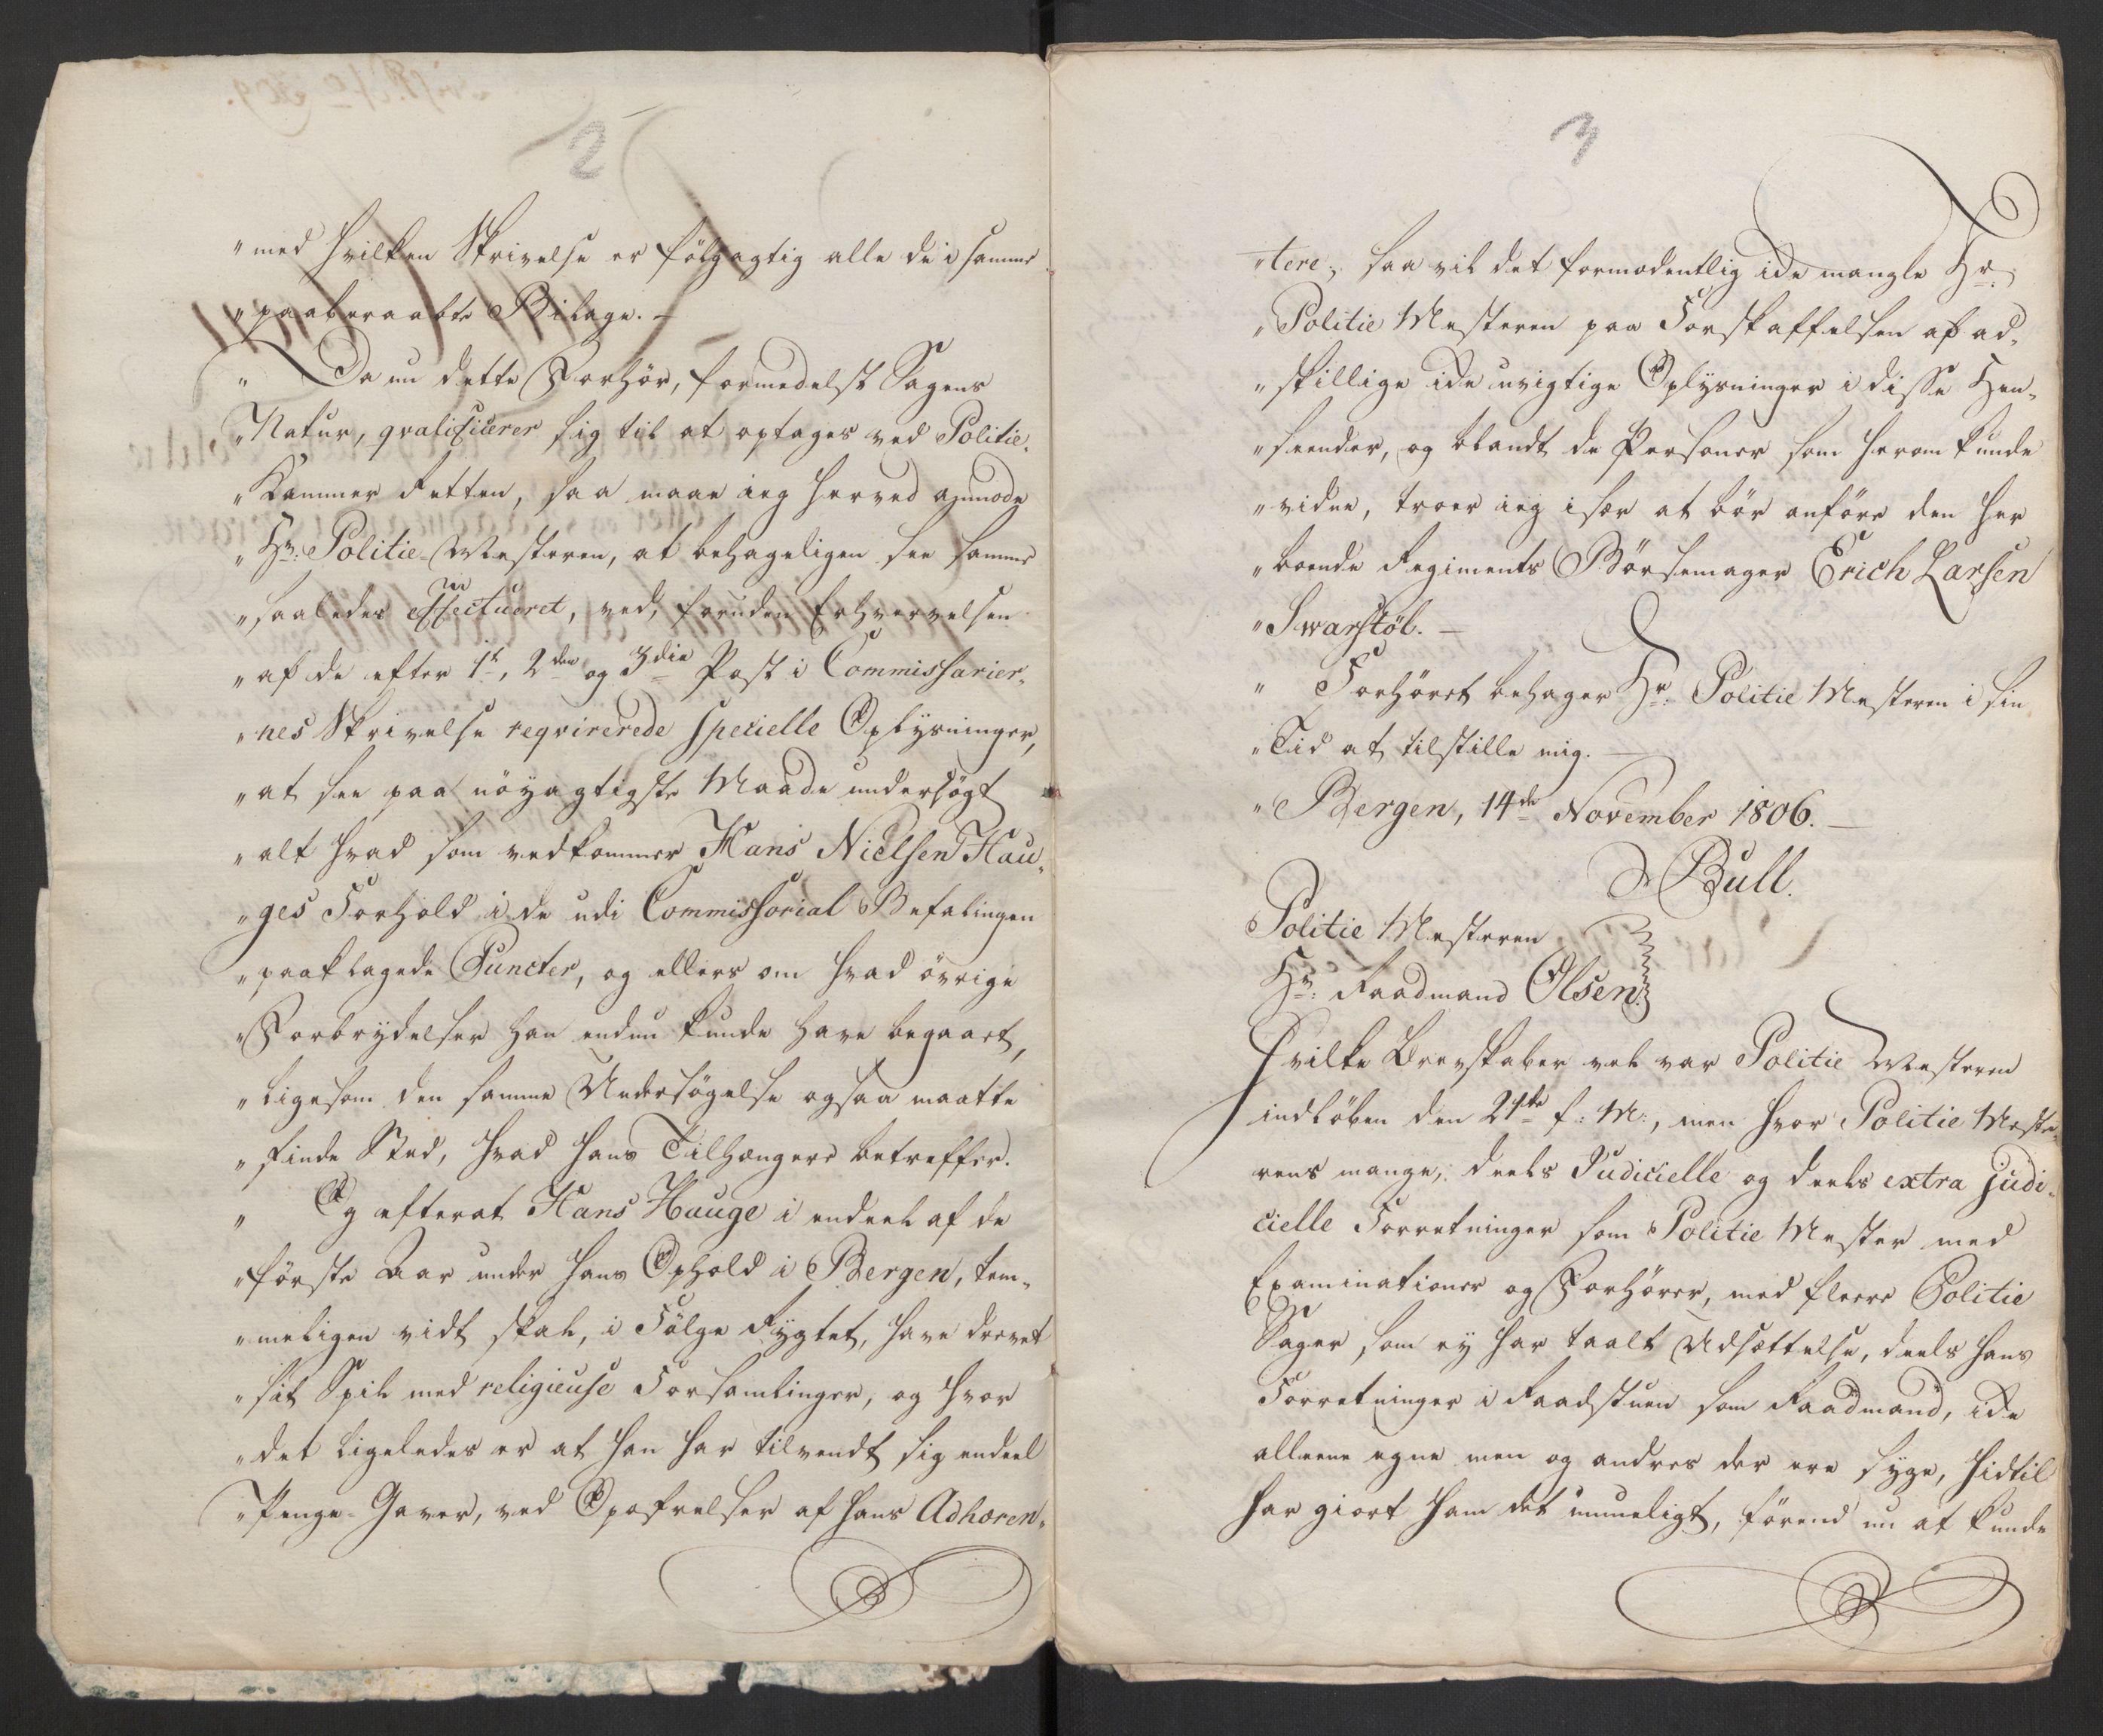 2
„ med hvilken Skrivelse er følgagtig alle de i samme
„ paaberaabte Bilage. —
„ Da nu dette Forhör, formedelst Sagens
„ Natur, qvalificerer sig til at optages ved Politie-
„ Kammer Retten, saa maae ieg herved anmode
„ Hr: Politie-Mesteren, at behageligen see samme
„ saaledes effectueret, ved, foruden Erhvervelsen
„ af de efter 1te, 2den og 3die Post i Commissarier-
„ nes Skrivelse reqvirerede specielle Oplysninger,
„ at see paa nöyagtigste Maade undersögt
„ alt hvad som vedkommer Hans Nielsen Hau-
„ ges Forhold i de udi Commissorial Befalingen
„ paaklagede Puncter, og ellers om hvad övrige
„ Forbrydelser han endnu kunde have begaaet,
„ ligesom den samme Undersögelse ogsaa maatte
„ finde Sted, hvad hans Tilhængere betreffer.
„ Og efterat Hans Hauge i endeel af de
„ förste Aar under hans Ophold i Bergen, tem-
„ meligen vidt skal, i Fölge Rygtet, have drevet
„ sit Spil med religieuse Forsamlinger, og hvor
„ det ligeledes er at han har tilvendt sig endeel
„ Penge-Gaver, ved Opofrelser af hans Adhæren-
3
„ tere, saa vil det formodentlig icke mangle Hr:
„ Politie Mesteren paa Forskaffelsen af ad-
„ skillige icke uvigtige Oplysninger i disse Hen-
„ seender, og blandt de Personer som herom kunde
„ vidne, troer ieg især at bör anföre den her
„ boende Regiments Börsemager Erich Larsen
„ Swarstöl. —
„ Forhöret behager Hr: Politie Mesteren i sin
„ Tid at tilstille mig. —
„ Bergen, 14de November 1806. —
Bull.
Politie Mesteren
Hr: Raadmand Olsen
Hvilke Brevskaber vel var Politie Mesteren
indlöben den 21de f: M:, men hvor Politie Meste-
rens mange, deels Judicielle og deels extra judi-
cielle Forretninger som Politie Mester med
Examinationer og Forhörer, med fleere Politie
Sager som ey har taalt Udsættelse, deels hans
Forretninger i Raadstuen som Raadmand, icke
alleene egne men og andres der ere syge, hidtil
har giort ham det umueligt, förend nu at kunde